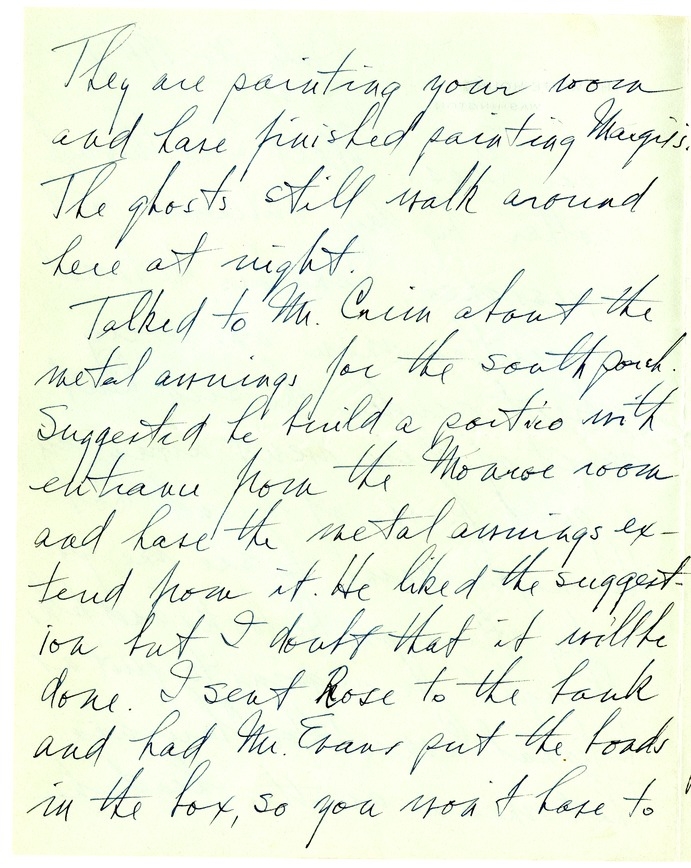 They are painting your room
and have finished painting Margie's.
The ghosts still walk around
here at night.
Talked to Mr. Crim about the
metal awnings for the south porch.
Suggested he build a portico with
entrance from the Monroe room
and have the metal awnings ex-
tend from it. He liked the suggest-
ion but I doubt that it will be
done. I sent Rose to the bank
and had Mr. Evans put the bonds
in the box, so you won't have to